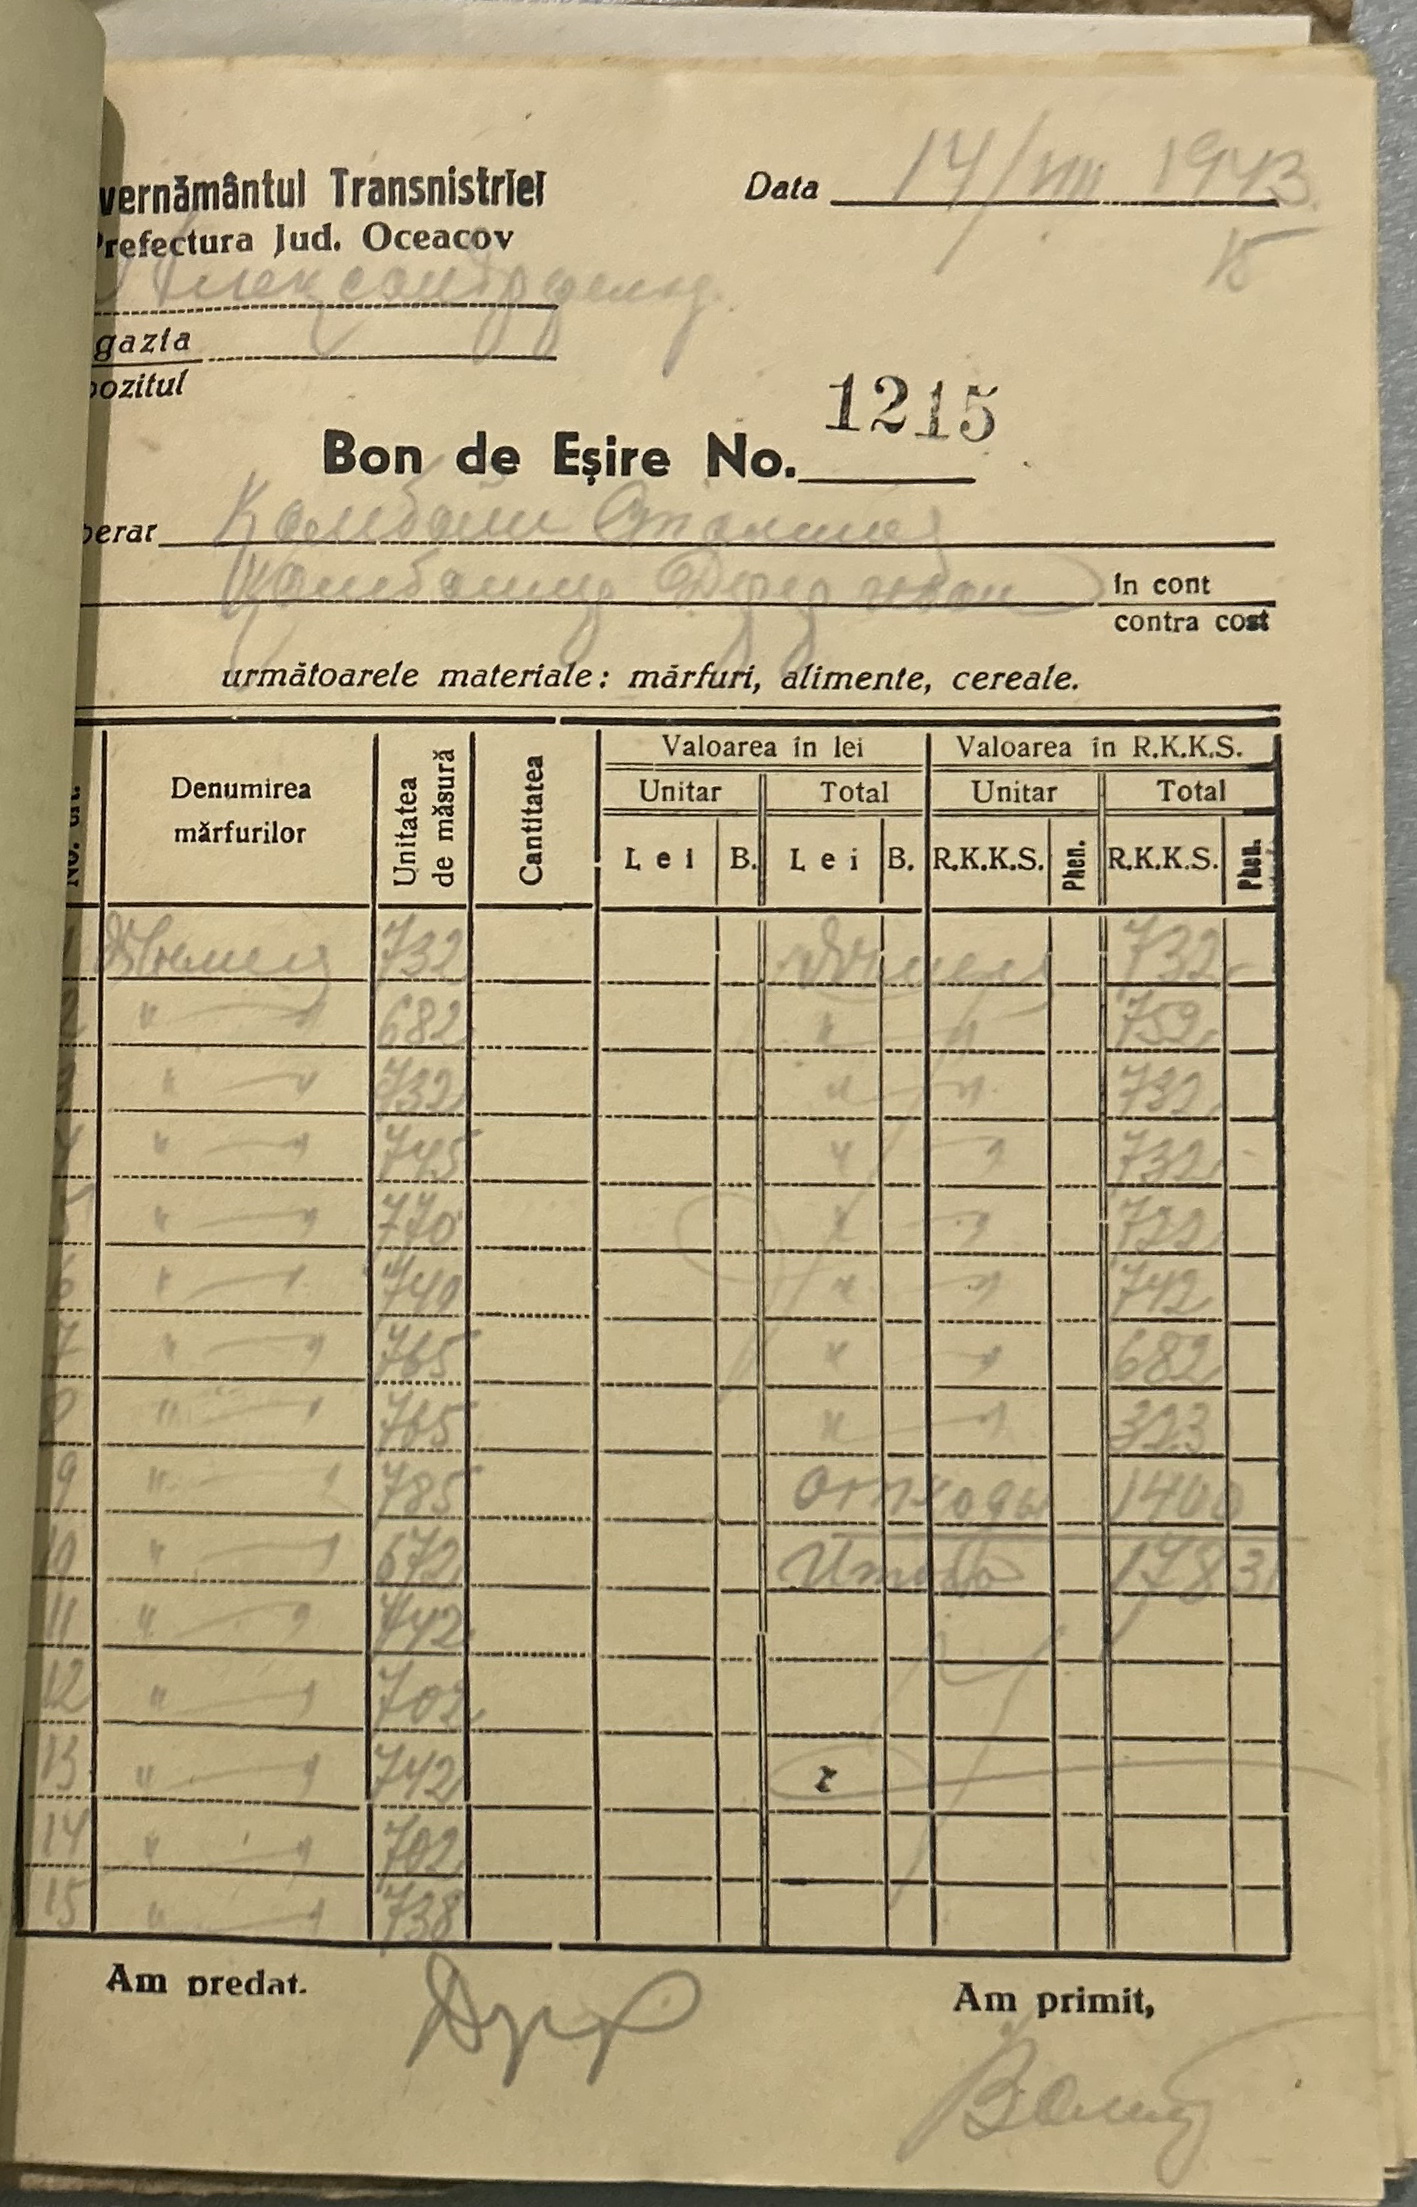 vernământul Transnistriei
Data 14/VIII 1943
Prefectura Jud. Oceacov
15
Александрфельд
gazia
pozitul
1215
Bon de Eşire No.
berat Комбайн Сталинец
Комбайнер
în cont
contra cost
următoarele materiale: mărfuri, alimente, cereale.
No. crt. Denumirea mărfurilor Unitatea de măsură Cantitatea Valoarea în lei Valoarea în R.K.K.S.
Unitar Total Unitar Total
Lei B. Lei B. R.K.K.S. Phen. R.K.K.S. Phen.
1 Ячмень 732 Ячмень 732
2 " — " 682 " — " 752
3 " — " 732 " — " 732
4 " — " 745 " — " 732
5 " — " 770 " — " 722
6 " — " 740 " — " 742
7 " — " 765 " — " 682
8 " — " 765 " — " 323
9 " — " 785 отходы 1400
10 " — " 672 Итого 17831
11 " — " 742
12 " — " 702
13 " — " 742
14 " — " 702
15 " — " 738
Am predat.
Am primit,